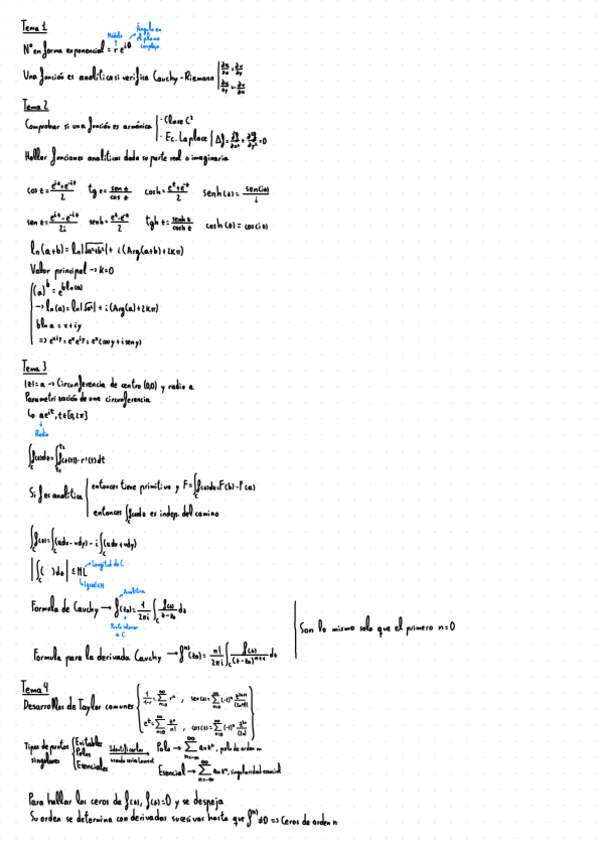 Tema 1
Módulo
Ángulo en el plano complejo
Nº en forma exponencial = r e^{iθ}
Una función es analítica si verifica Cauchy-Riemann | ∂u/∂x = ∂v/∂y
∂u/∂y = -∂v/∂x
Tema 2
Comprobar si una función es armónica | · Clase C²
· Ec. Laplace | Δf = ∂²f/∂x² + ∂²f/∂y² = 0
Hallar funciones analíticas dada su parte real o imaginaria
cos z = (e^{iz}+e^{-iz})/2 tg z = sen z/cos z cosh = (e^z+e^{-z})/2 senh(z) = sen(iz)/i
sen z = (e^{iz}-e^{-iz})/2i senh = (e^z-e^{-z})/2 tgh z = senh z/cosh z cosh(z) = cos(iz)
ln(a+b) = ln|√a²+b²| + i(Arg(a+b)+2Kπ)
Valor principal → K=0
(a)^b = e^{b ln(a)}
→ ln(a) = ln|√a²| + i(Arg(a)+2Kπ)
b ln a = x+iy
=> e^{x+iy} = e^x e^{iy} = e^x(cos y + i sen y)
Tema 3
|z| = a → Circunferencia de centro (0,0) y radio a
Parametrización de una circunferencia
↳ a e^{it}, t∈[0,2π]
Radio
∫_C f(z)dz = ∫ f(r(t))·r'(t)dt
Si f es analítica | entonces tiene primitiva y F = ∫_C f(z)dz = F(b)-F(a)
entonces ∫_C f(z)dz es indep. del camino
∫_C f(z) = ∫_C (udx-vdy) - i∫_C (udx+vdy)
|∫_C ( )dz| ≤ ML
Longitud de C
Analítica
Formula de Cauchy → f(z₀) = 1/2πi ∫_C f(z)/(z-z₀) dz
Son lo mismo solo que el primero n=0
Formula para la derivada Cauchy → f^{(n)}(z₀) = n!/2πi ∫_C f(z)/(z-z₀)^{n+1} dz
Tema 4
Desarrollos de Taylor comunes { 1/(1-r) = Σ_{n=0}^∞ r^n , sen(z) = Σ_{n=0}^∞ (-1)^n z^{2n+1}/(2n+1)!
e^z = Σ_{n=0}^∞ z^n/n! , cos(z) = Σ_{n=0}^∞ (-1)^n z^{2n}/(2n)!
Tipos de puntos singulares { Evitables
Polos
Esenciales
Identificarlos usando serie Laurent
Polo → Σ_{n=-m}^∞ a_n z^n, polo de orden m
Esencial → Σ_{n=-∞}^∞ a_n z^n, singularidad esencial
Para hallar los ceros de f(z), f(z)=0 y se despeja
Su orden se determina con derivadas sucesivas hasta que f^{(n)} ≠ 0 => Ceros de orden n